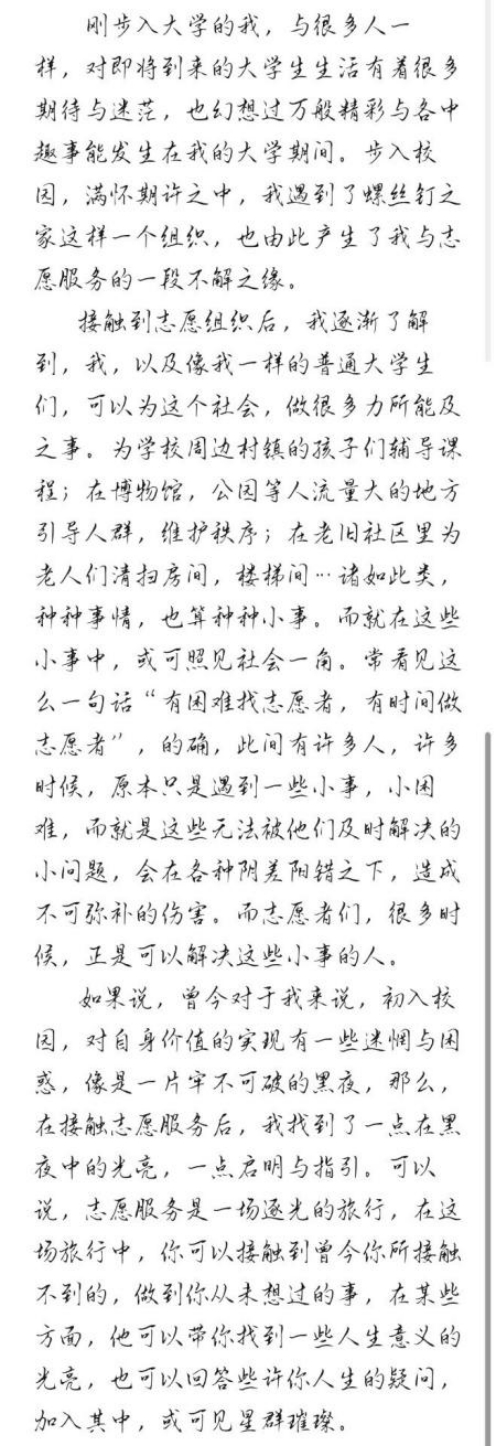 刚步入大学的我，与很多人一
样，对即将到来的大学生生活有着很多
期待与迷茫，也幻想过万般精彩与各中
趣事能发生在我的大学期间。步入校
园，满怀期许之中，我遇到了螺丝钉之
家这样一个组织，也由此产生了我与志
愿服务的一段不解之缘。
接触到志愿组织后，我逐渐了解
到，我，以及像我一样的普通大学生
们，可以为这个社会，做很多力所能及
之事。为学校周边村镇的孩子们辅导课
程；在博物馆，公园等人流量大的地方
引导人群，维护秩序；在老旧社区里为
老人们清扫房间，楼梯间…诸如此类，
种种事情，也算种种小事。而就在这些
小事中，或可照见社会一角。常看见这
么一句话“有困难找志愿者，有时间做
志愿者”，的确，此间有许多人，许多
时候，原本只是遇到一些小事，小困
难，而就是这些无法被他们及时解决的
小问题，会在各种阴差阳错之下，造成
不可弥补的伤害。而志愿者们，很多时
候，正是可以解决这些小事的人。
如果说，曾今对于我来说，初入校
园，对自身价值的实现有一些迷惘与困
惑，像是一片牢不可破的黑夜，那么，
在接触志愿服务后，我找到了一点在黑
夜中的光亮，一点启明与指引。可以
说，志愿服务是一场逐光的旅行，在这
场旅行中，你可以接触到曾今你所接触
不到的，做到你从未想过的事，在某些
方面，他可以带你找到一些人生意义的
光亮，也可以回答些许你人生的疑问，
加入其中，或可见星群璀璨。